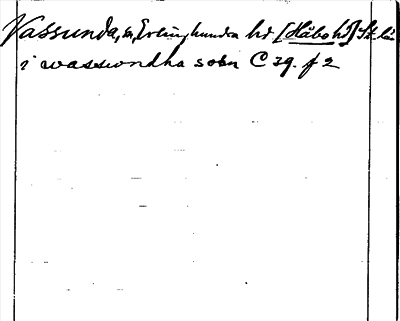 Vassunda, sn, Erlinghundra hd [Håbo hd] St. län
i wasswndha sokn C 29. f 2